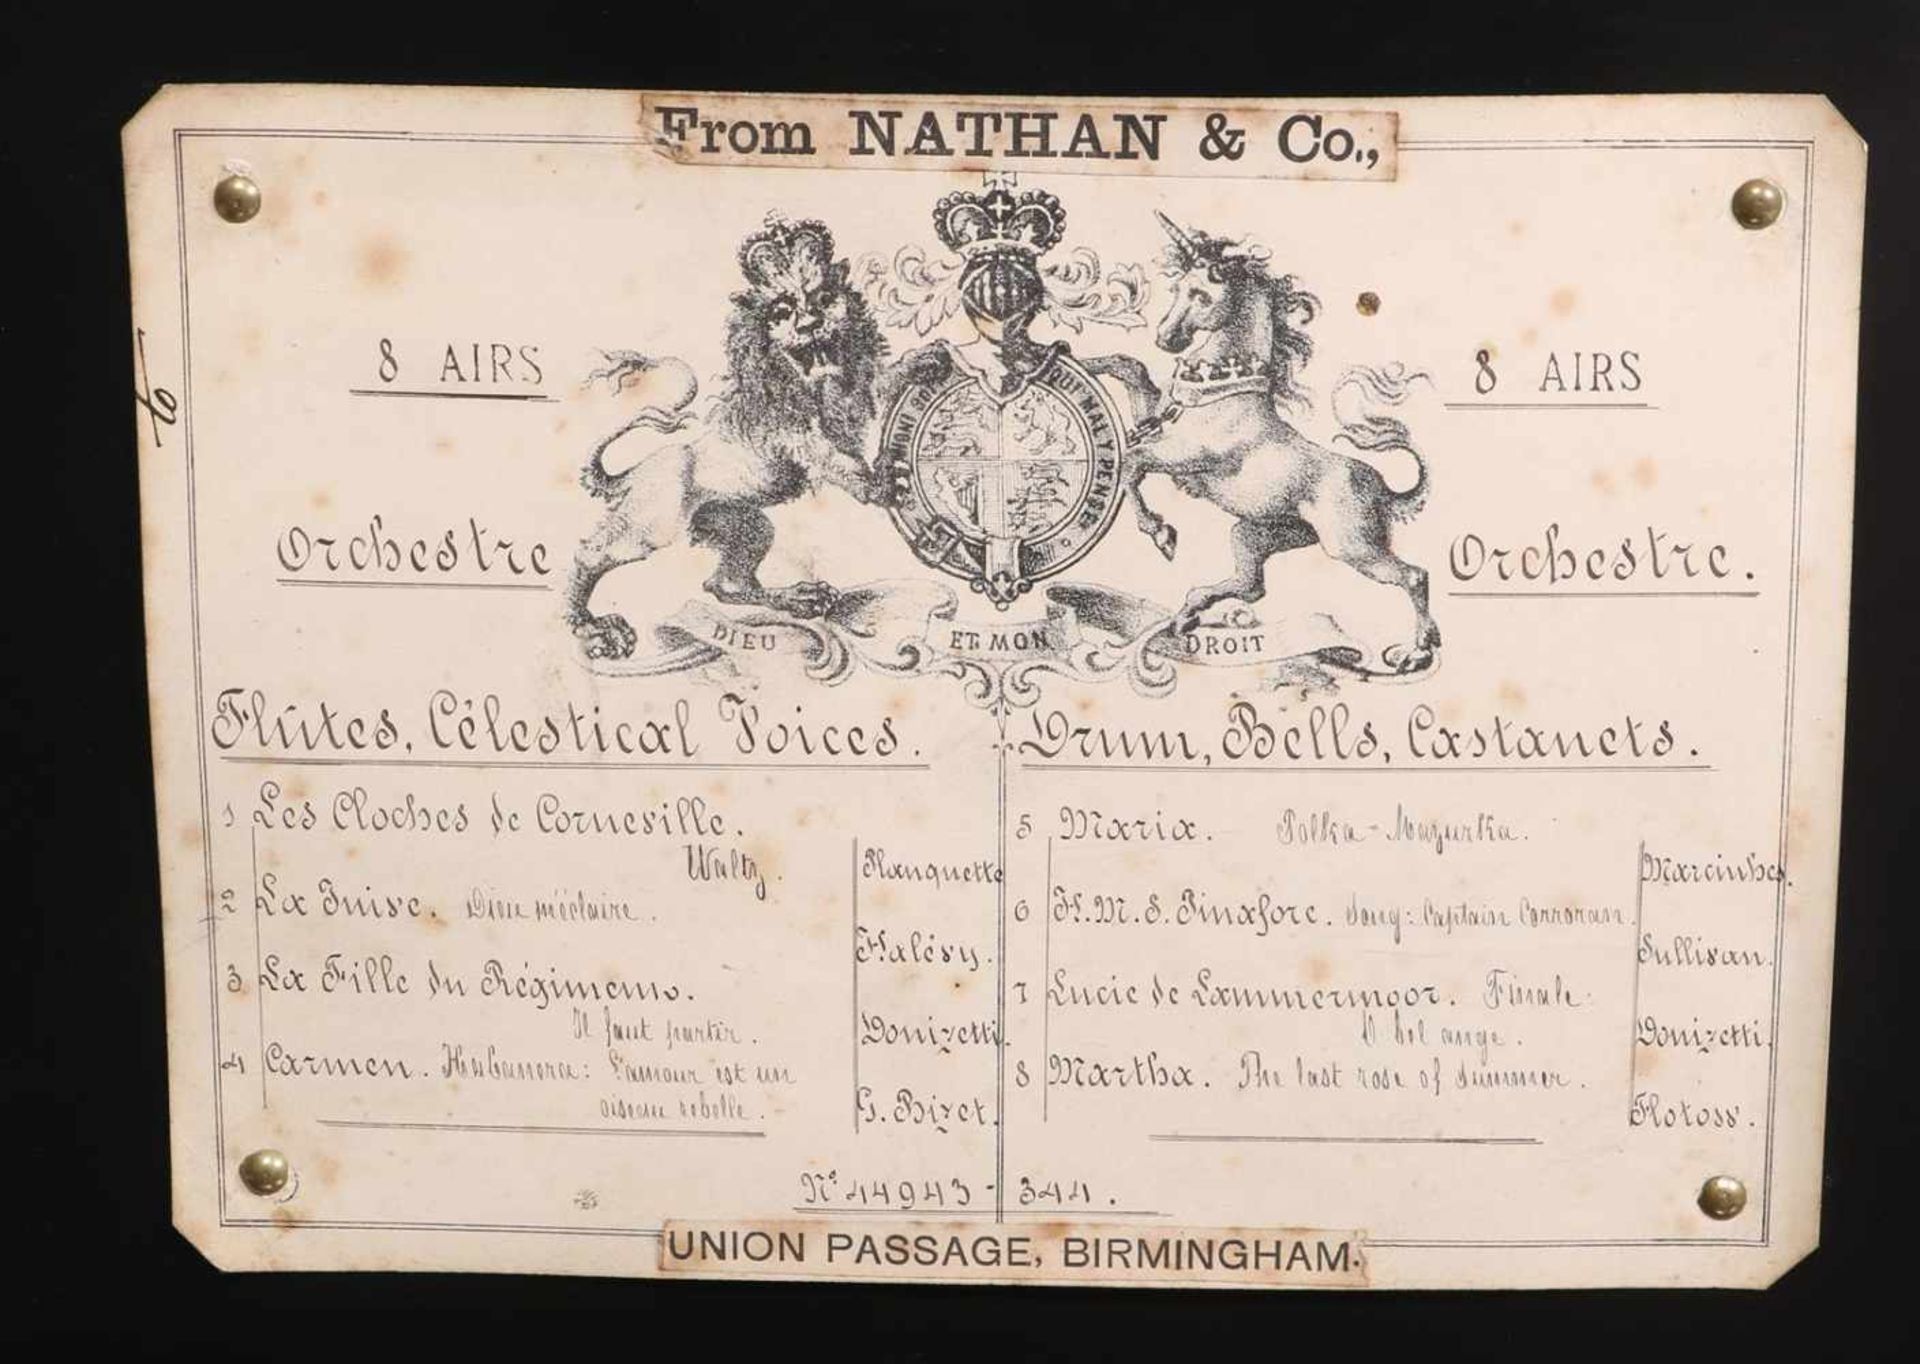 From NATHAN & Co.,
8 AIRS
8 AIRS
HONI SOI QUI MAL Y PENSE
Orchestre
Orchestre.
DIEU ET MON DROIT
Flûtes, Célestical Voices.
Drum, Bells, Castanets.
1 Les Cloches de Corneville.
Waltz. Planquette
2 La Juive. Dieu m'éclaire.
Halévy.
3 La Fille du Régiment.
Il faut partir. Donizetti.
4 Carmen. Habanera: L'amour est un
oiseau rebelle. G. Bizet.
5 Maria. Polka-Mazurka.
6 H.M.S. Pinafore. Song: Captain Corcoran.
Sullivan.
7 Lucie de Lammermoor. Finale.
O bel ange. Donizetti.
8 Martha. The last rose of summer.
Nº 44943 - 344.
UNION PASSAGE, BIRMINGHAM.